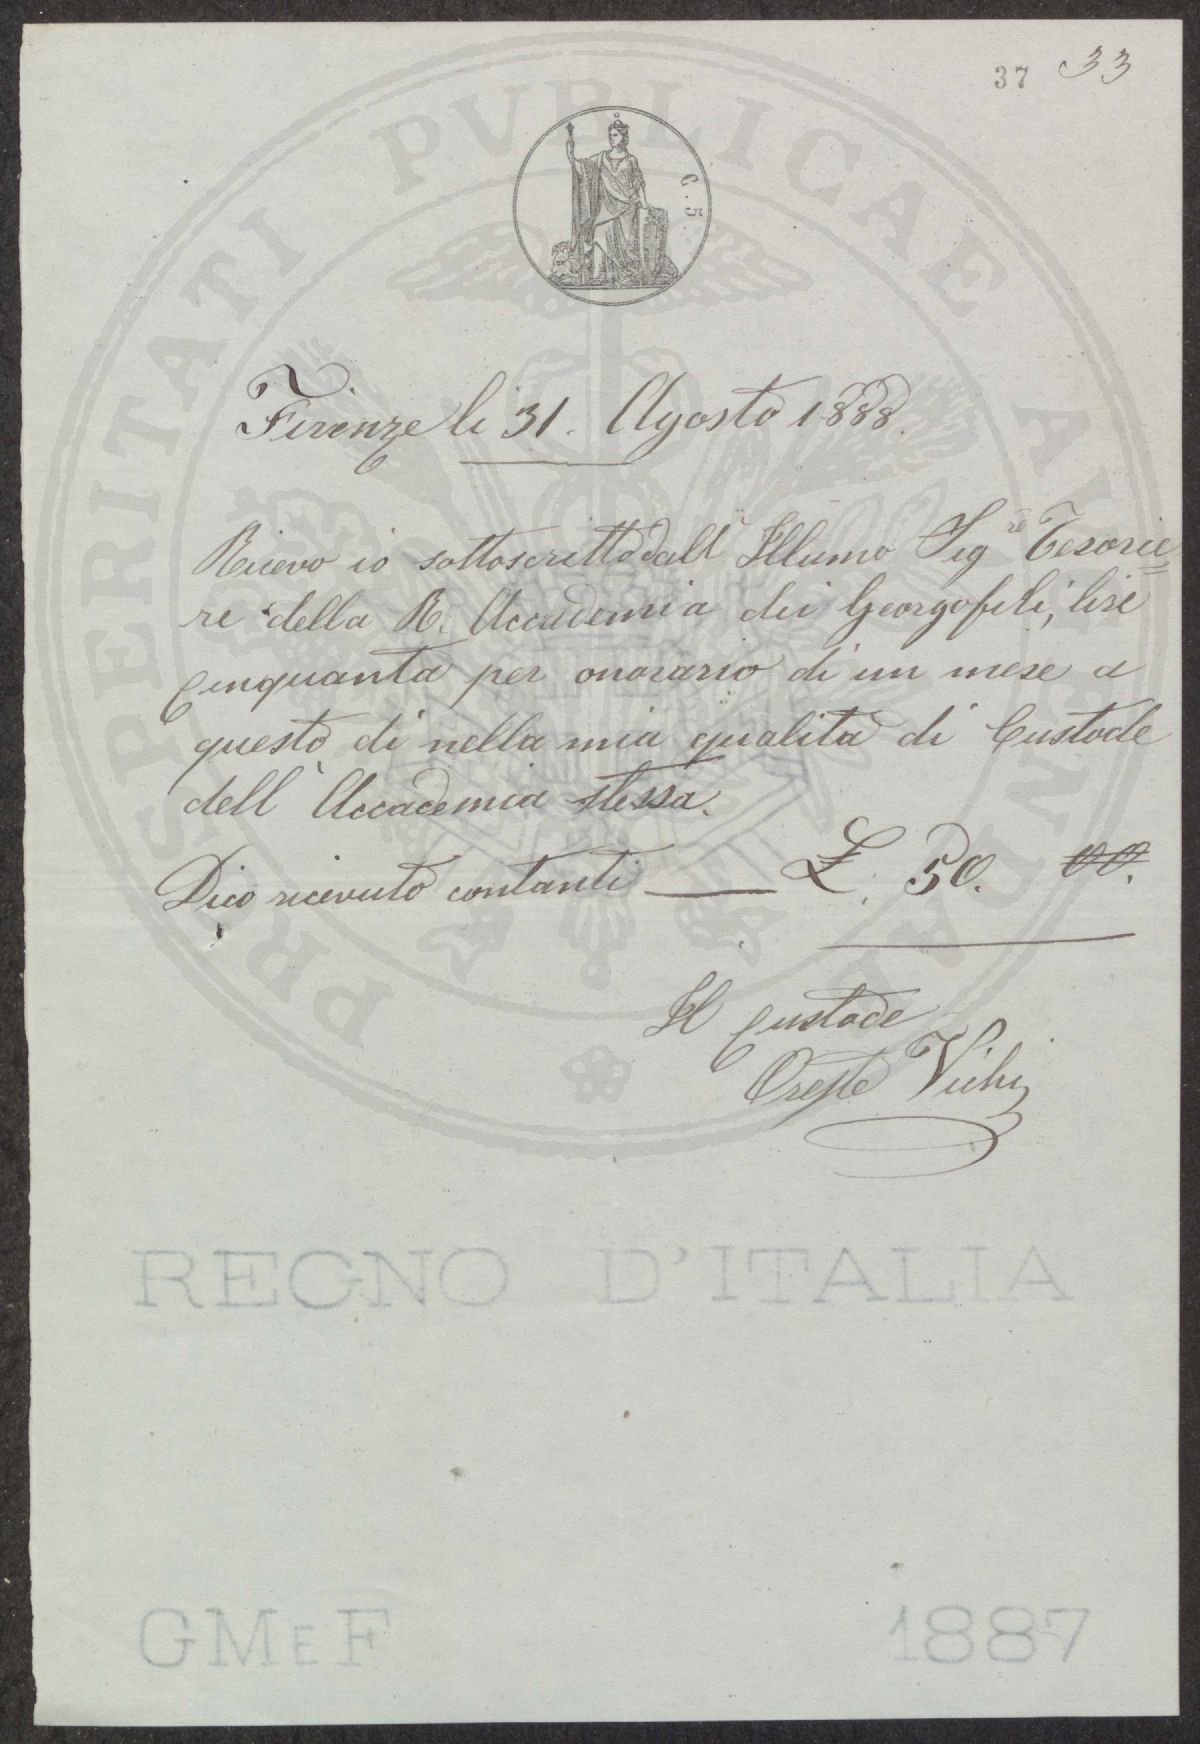 37 33
C. 5
PROSPERITATI PVBLICAE AVGENDAE
Firenze li 31. Agosto 1888.
Ricevo io sottoscritto dall' Illumo Sigre Tesorie=
re della R. Accademia dei Georgofili, lire
Cinquanta per onorario di un mese a
questo di nella mia qualità di Custode
dell' Accademia stessa.
Dico ricevuto contanti — £. 50. 00.
Il Custode
Oreste Vichi
REGNO D'ITALIA
GMEF 1887